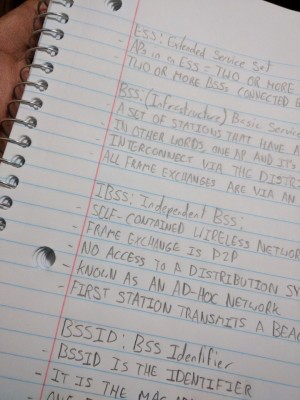 ESS: Extended Service Set
APs in an ESS = TWO OR MORE
TWO OR MORE BSSs CONNECTED
BSS: (Infrastructure) Basic Service
- A SET OF STATIONS THAT HAVE A
IN OTHER WORDS, ONE AP AND ITS
- INTERCONNECT VIA THE DISTR
- ALL FRAME EXCHANGES ARE VIA AN
IBSS: Independent BSS:
- SELF-CONTAINED WIRELESS NETWOR
- FRAME EXCHANGE IS P2P
- NO ACCESS TO A DISTRIBUTION SY
- KNOWN AS AN AD-HOC NETWORK
- FIRST STATION TRANSMITS A BEAC
BSSID: BSS Identifier
- BSSID IS THE IDENTIFIER
- IT IS THE MAC